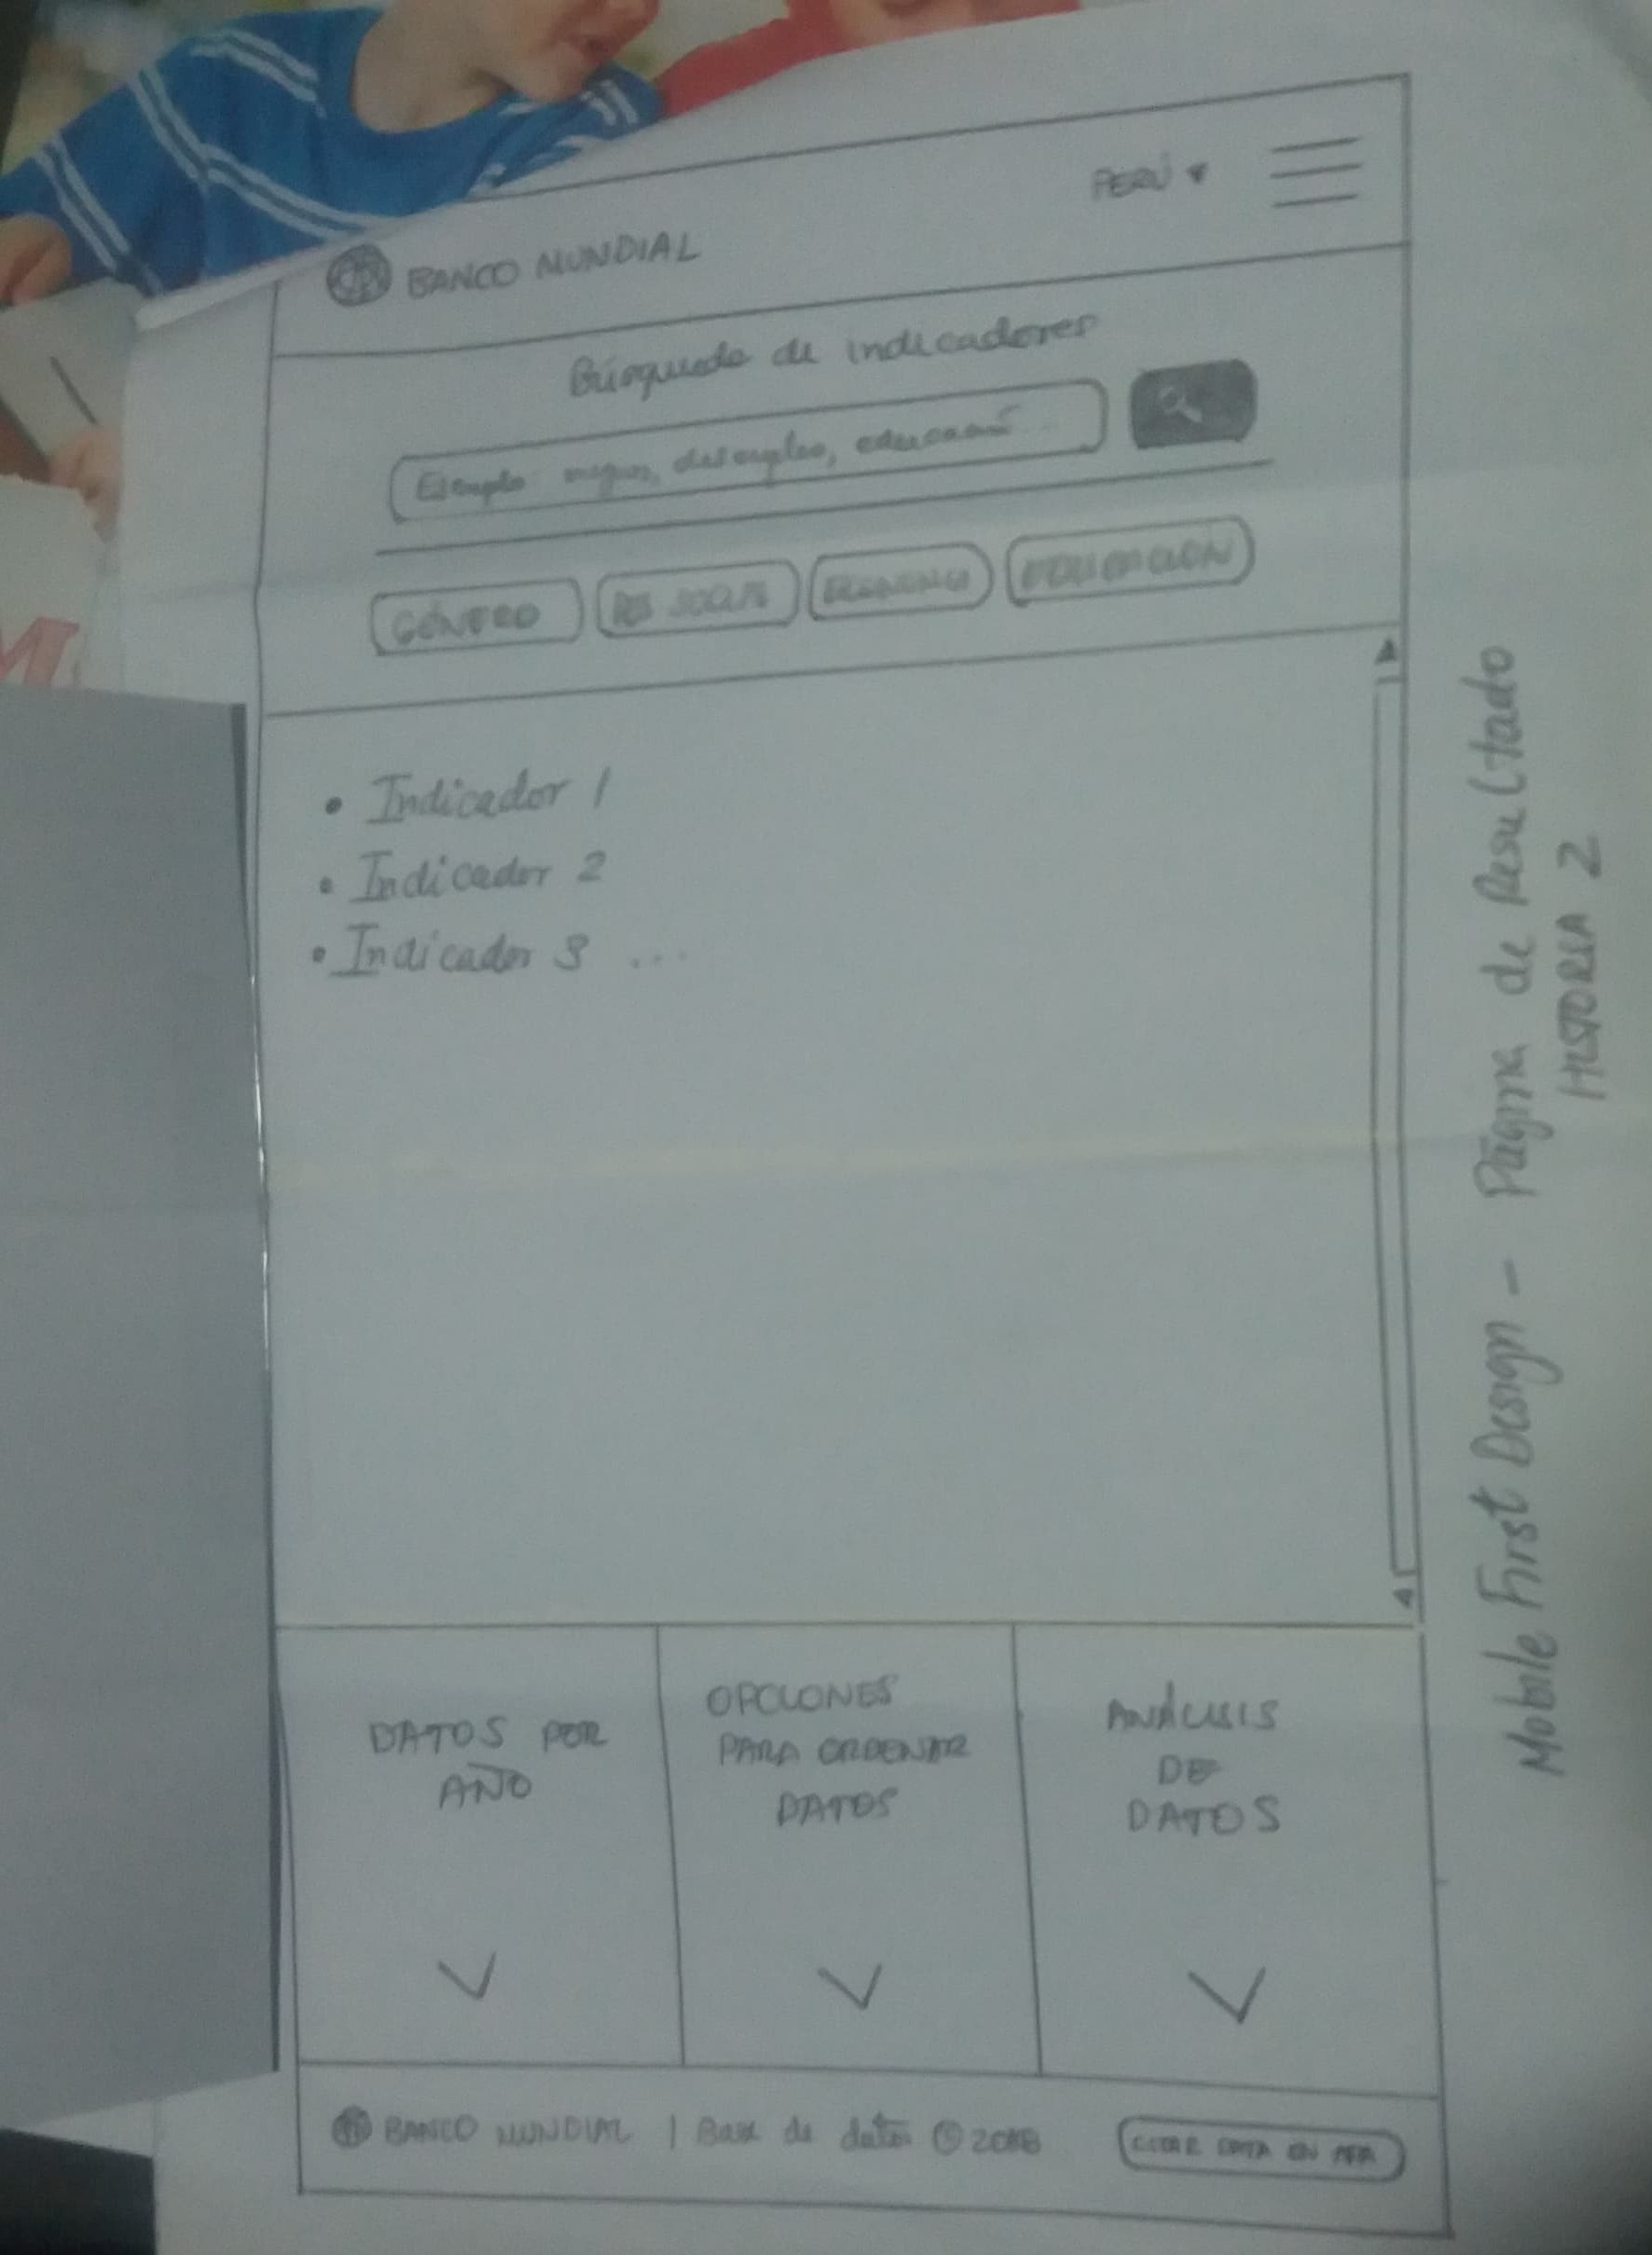 BANCO MUNDIAL
PERÚ
Búsqueda de indicadores
Ejemplo: desempleo, educación...
GÉNERO
ECONOMÍA
EDUCACIÓN
• Indicador 1
• Indicador 2
• Indicador 3 ...
DATOS POR
AÑO
OPCIONES
PARA ORDENAR
DATOS
ANÁLISIS
DE
DATOS
BANCO MUNDIAL | Base de datos © 2018
CITAR DATA EN APA
Mobile First Design - Página de Resultado
HISTORIA 2